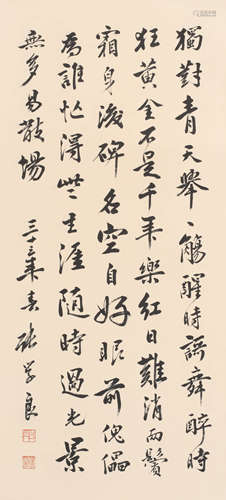 獨對青天舉一觴醒時謌舞醉時
狂黃金不是千年樂紅日難消兩鬢
霜身後碑名空自好眼前傀儡
為誰忙得些生涯隨時過光景
無多易散場 三十三年春 张学良